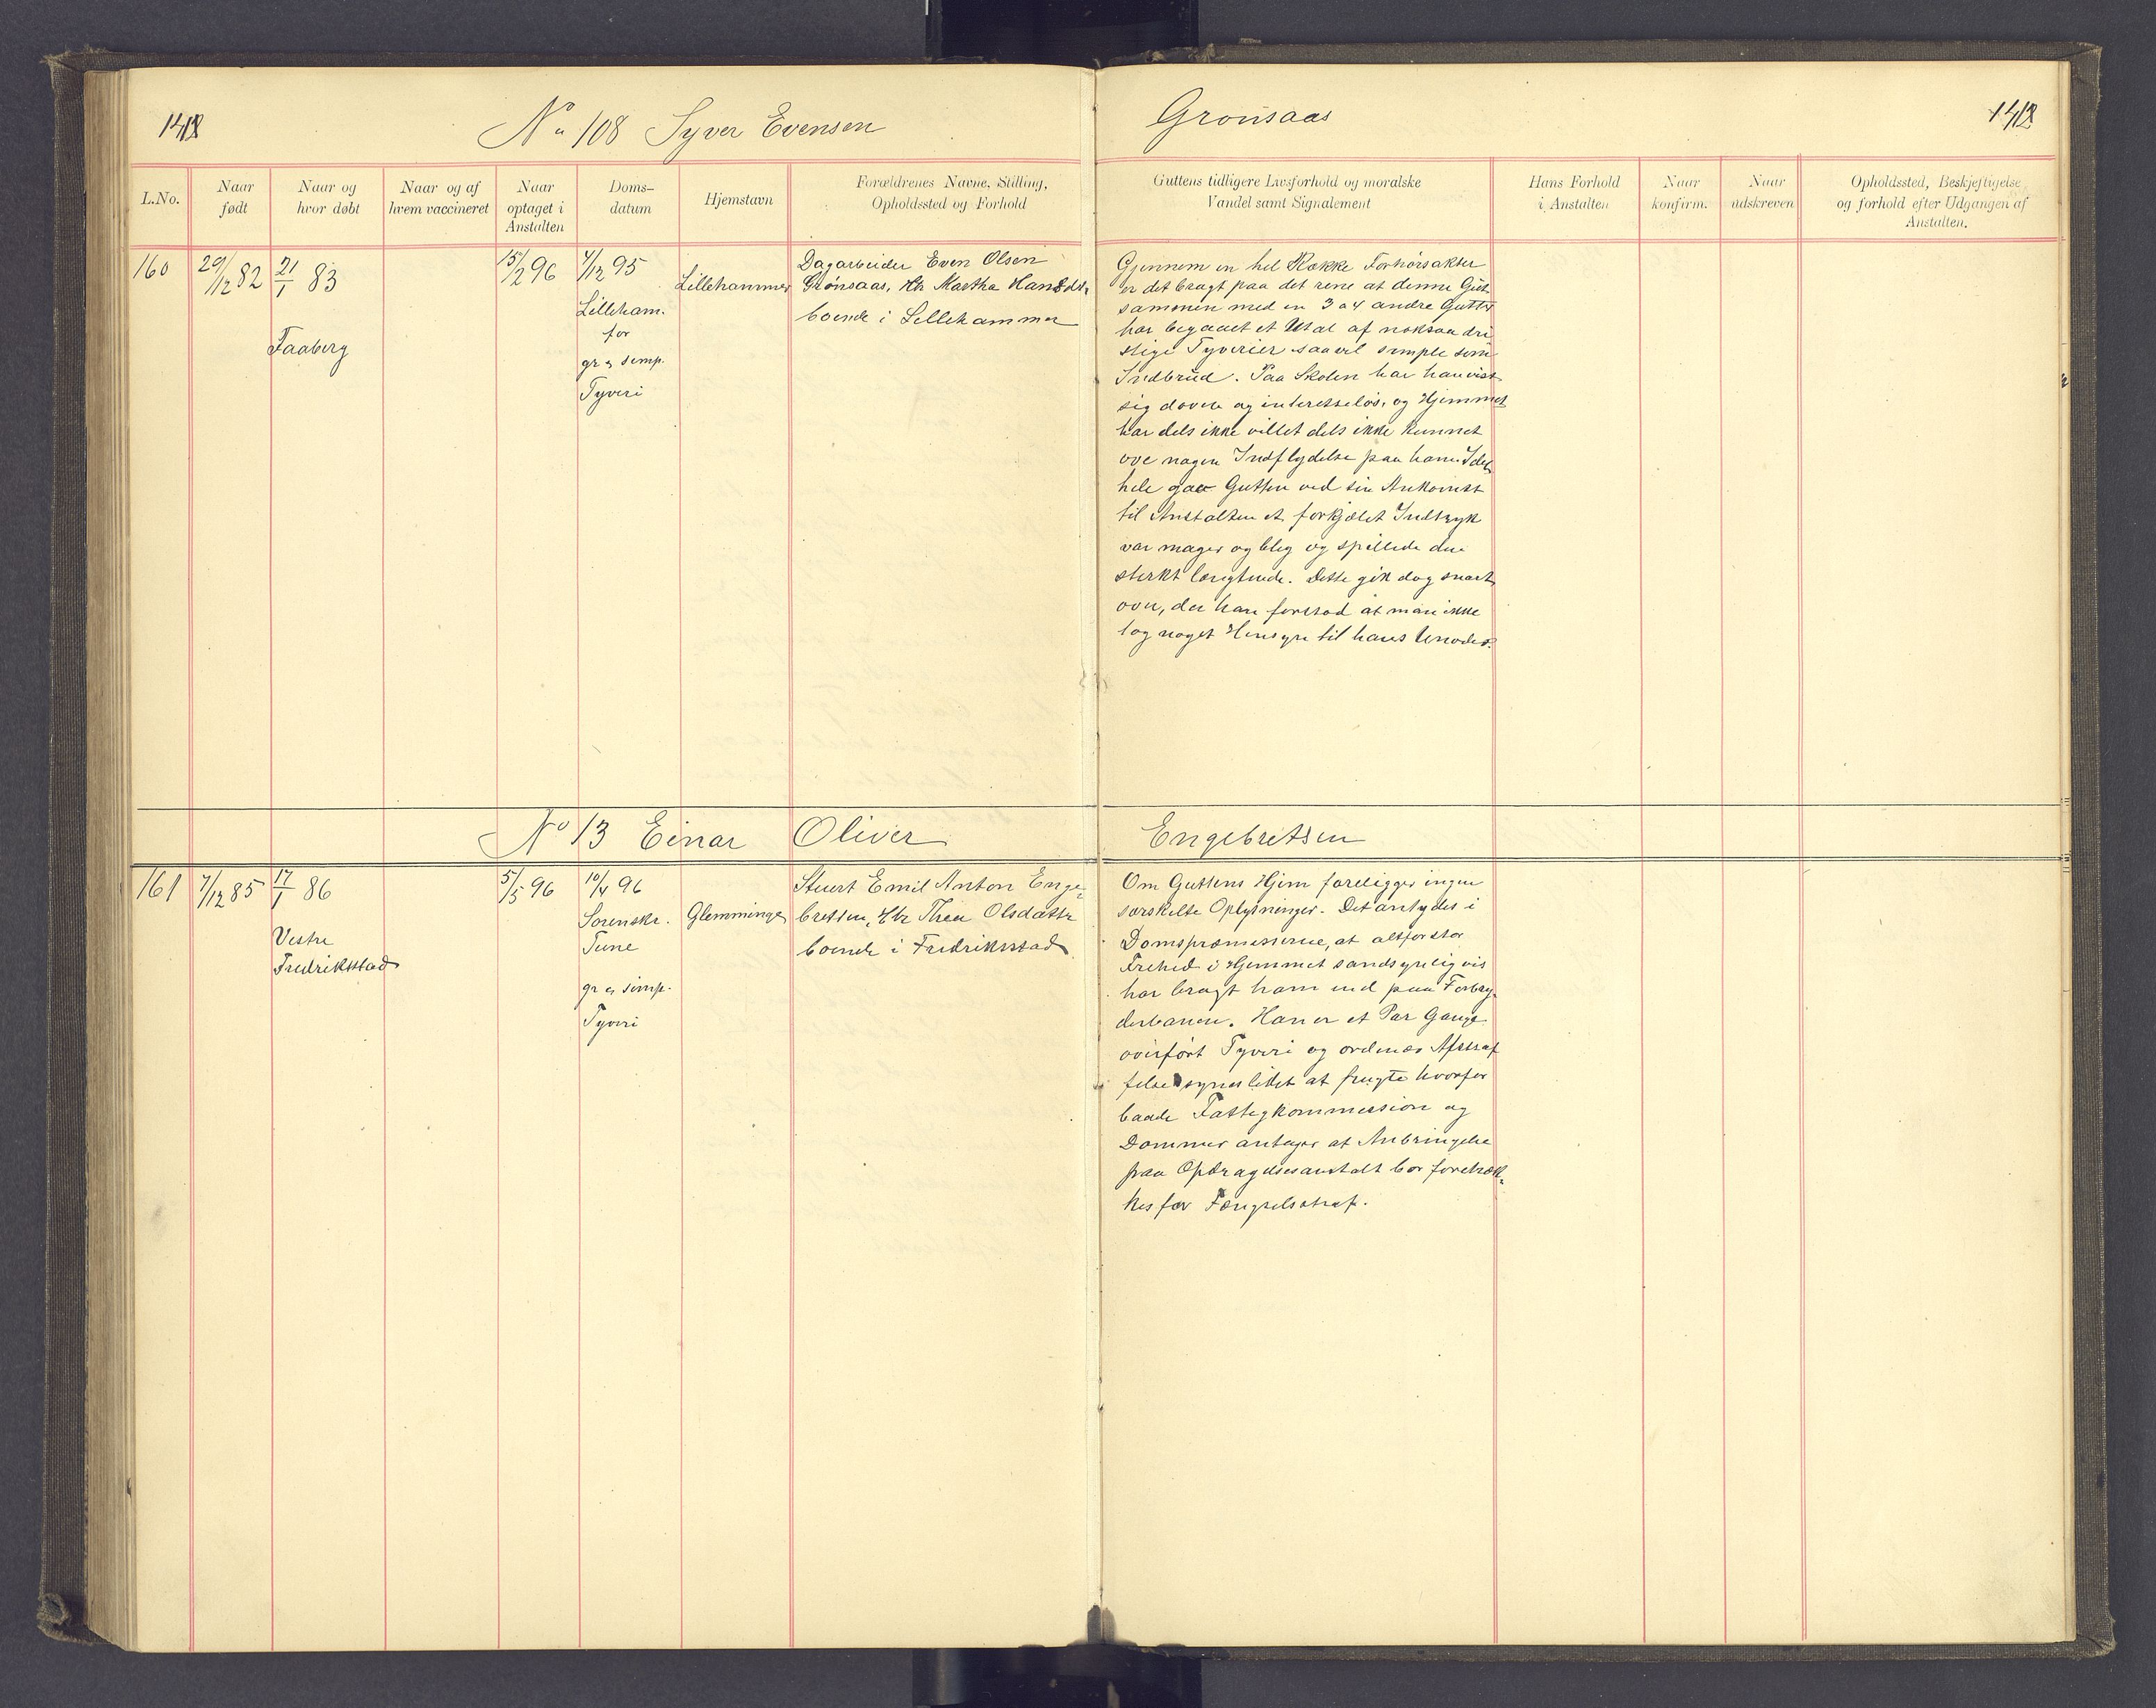 No 108 Syver Evensen Grønsaas
L.No.
Naar født
Naar og hvor døbt
Naar og af hvem vaccineret
Naar optaget i Anstalten
Doms-datum
Hjemstavn
Forældrenes Navne, Stilling, Opholdssted og Forhold
Guttens tidligere Livsforhold og moralske Vandel samt Signalement
Hans Forhold i Anstalten
Naar konfirm.
Naar udskreven
Opholdssted, Beskjeftigelse og forhold efter Udgangen af Anstalten.
160
29/12 82
21/1 83
Faaberg
15/2 96
4/12 95
Lilleham.
for
gr og simp.
Tyveri
Lillehammer
Dagarbeider Even Olsen
Grønsaas, Hr Martha Hansdtr
boende i Lillehammer
Gjennem en hel Række Forhørsakter
er det bragt paa det rene at denne Gut
sammen med en 3 a 4 andre Gutter
har begaaet et Utal af noksaa dri
stige Tyverier saavel simple som
Indbrud. Paa Skolen har han vist
sig doven og interesseløs, og Hjemmet
har dels ikke villet dels ikke kunnet
øve nogen Indflydelse paa ham. Idet
hele gav Gutten ved sin Ankomst
til Anstalten et forkjælet Indtryk
var mager og bleg og spillede den
sterkt længtende. Dette gik dog snart
over, da han forstod at man ikke
tog noget Hensyn til hans Unoder.
No 13 Einar Oliver Engebretsen
161
7/12 85
17/1 86
Vestre
Fredriksstad
5/5 96
10/4 96
Sorenskr.
Tune
gr og simp.
Tyveri
Glemminge
Stuert Emil Anton Enge-
bretsen, Hr Thea Olsdatter
boende i Fredriksstad
Om Guttens Hjem foreligger ingen
særskilte Oplysninger. Det antydes i
Domspræmisserne, at altfor stor
Frihed i Hjemmet sandsynligvis
har bragt ham ind paa Forbry-
derbanen. Han er et Par Gange
overført Tyveri og ordinær Afstraf
felse synes lidet at frugte hvorfor
baade Fattigkommission og
Dommer antager at Anbringelse
paa Opdragelsesanstalt bør foretræk-
kes for Fængselsstraf.